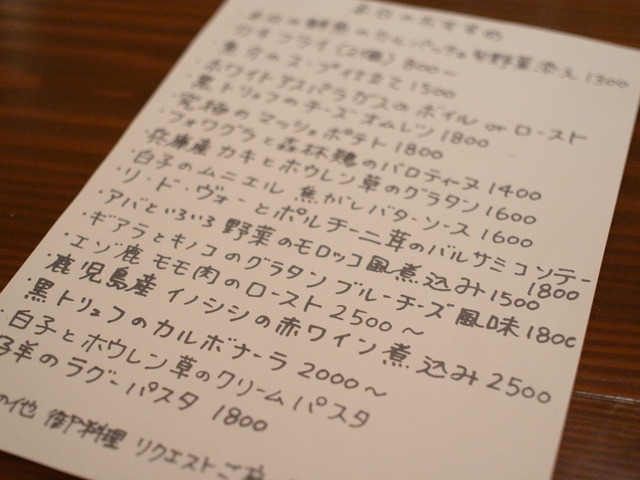 本日のおすすめ
本日の鮮魚のカルパッチョ 旬野菜添え 1300
カキフライ(2個) 800〜
のスープ仕立て 1500
ホワイトアスパラガスのボイル or ロースト
黒トリュフのチーズオムレツ 1800
究極のマッシュポテト 1800
フォワグラと森林鶏のバロティーヌ 1400
兵庫産 カキとホウレン草のグラタン 1600
・白子のムニエル 焦がしバターソース 1600
・リ・ド・ヴォーとポルチーニ茸のバルサミコソテー 1800
・アバといろいろ野菜のモロッコ風煮込み 1500
・ギアラとキノコのグラタン ブルーチーズ風味 1800
・エゾ鹿 モモ肉のロースト 2500〜
・鹿児島産 イノシシの赤ワイン煮込み 2500
・黒トリュフのカルボナーラ 2000〜
・白子とホウレン草のクリームパスタ
仔羊のラグーパスタ 1800
の他 御料理 リクエストご